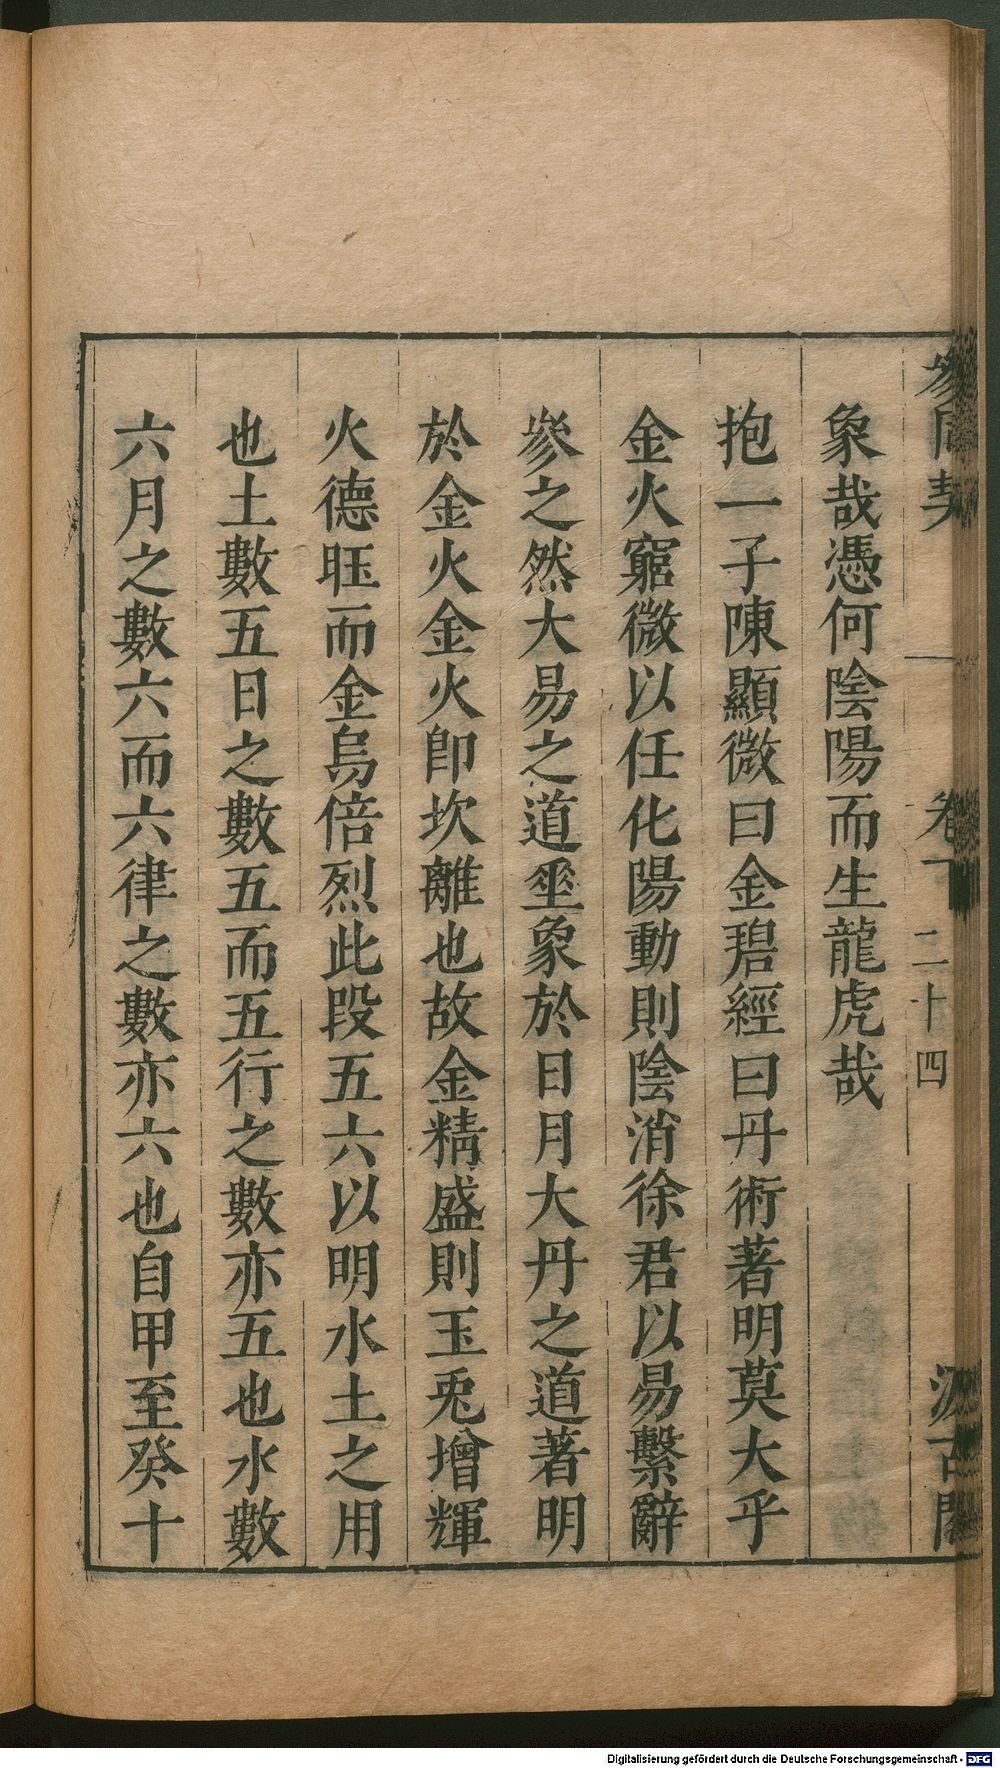 參同契 卷下 二十四 汲古閣
象哉憑何陰陽而生龍虎哉
抱一子陳顯微曰金碧經曰丹術著明莫大乎
金火窮微以任化陽動則陰消徐君以易繫辭
參之然大易之道埀象於日月大丹之道著明
於金火金火卽坎離也故金精盛則玉兎增輝
火德昄而金烏倍烈此段五六以明水土之用
也土數五日之數五而五行之數亦五也水數
六月之數六而六律之數亦六也自甲至癸十
Digitalisierung gefördert durch die Deutsche Forschungsgemeinschaft - DFG